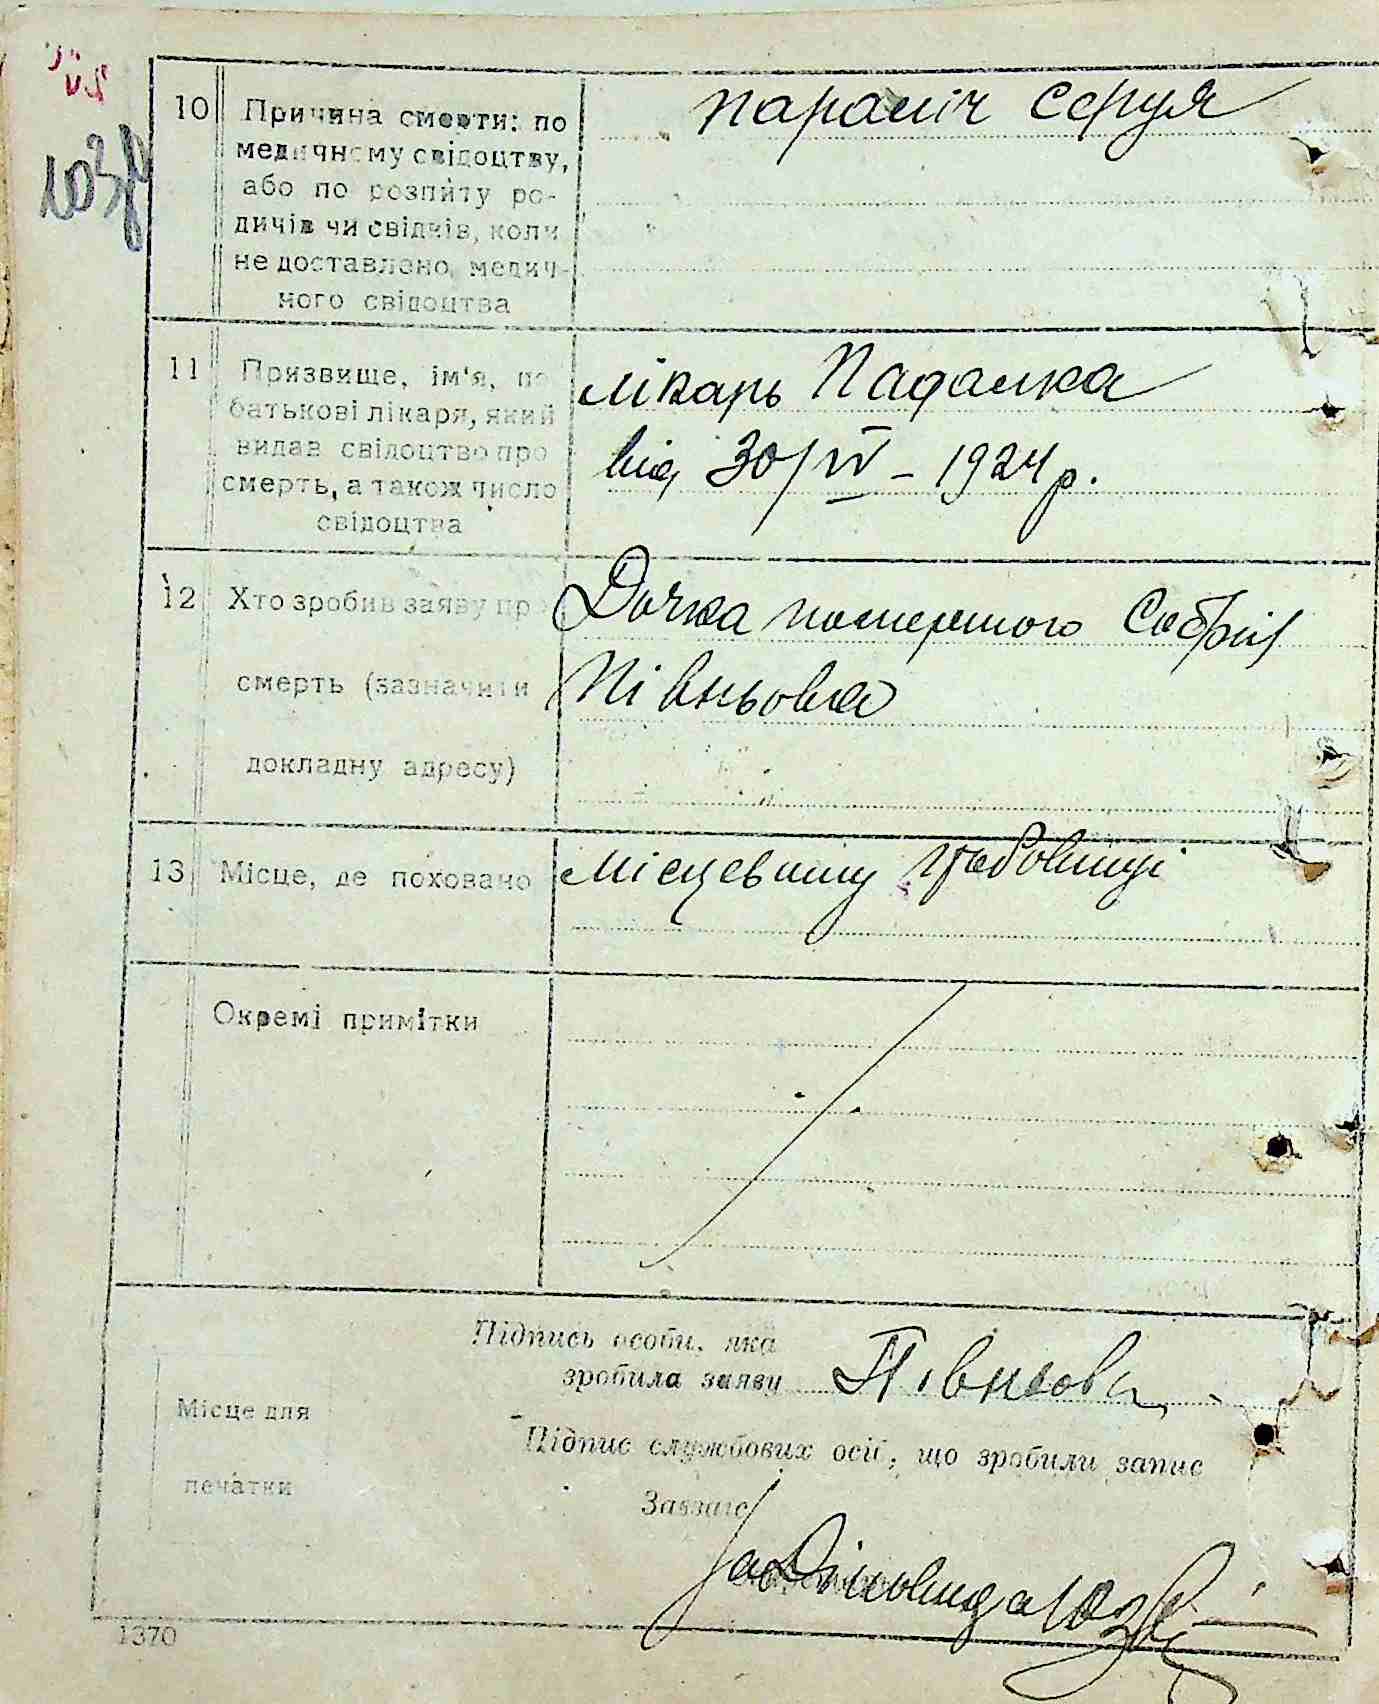 10 Причина смерти: по медичному свідоцтву, або по розпиту родичів чи свідків, коли не доставлено медичного свідоцтва
параліч серця
11 Призвище, ім'я, по батькові лікаря, який видав свідоцтво про смерть, а також число свідоцтва
лікарь Падалка
від 30/IV – 1924 р.
12 Хто зробив заяву про смерть (зазначити докладну адресу)
Дочка помершого
Півньова
13 Місце, де поховано
Місцевому
Окремі примітки
Підпись особи, яка
зробила заяву Півньова
Місце для
печатки
Підпис службових осіб, що зробили запис
Завзагс
1370